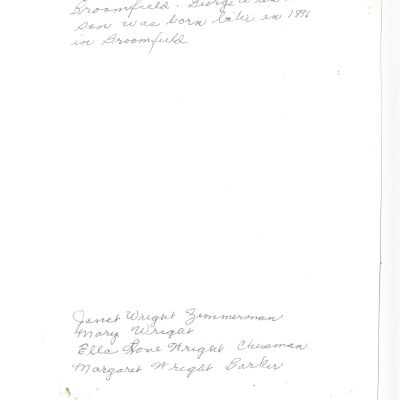 Broomfield. George
son was born later in 1896
in Broomfield
Janet Wright Zimmerman
Mary Wright
Ella Love Wright Cheisman
Margaret Wright Barker